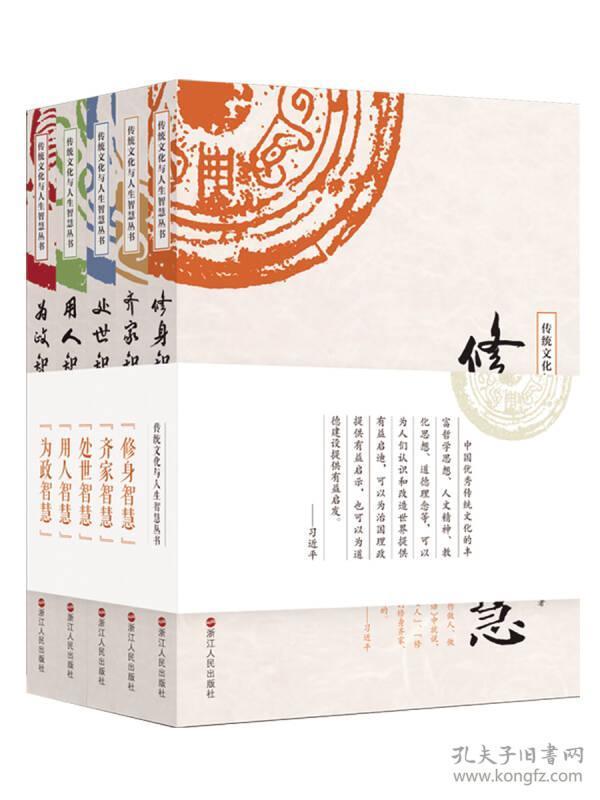 传统文化与人生智慧丛书
为政智
浙江人民出版社
传统文化与人生智慧丛书
用人智
浙江人民出版社
传统文化与人生智慧丛书
处世智
浙江人民出版社
传统文化与人生智慧丛书
齐家智
浙江人民出版社
传统文化与人生智慧丛书
修身智
浙江人民出版社
传统文化与人生智慧丛书
「修身智慧」
「齐家智慧」
「处世智慧」
「用人智慧」
「为政智慧」
传统文化
修
中国优秀传统文化的丰
富哲学思想、人文精神、教
化思想、道德理念等，可以
为人们认识和改造世界提供
有益启迪，可以为治国理政
提供有益启示，也可以为道
德建设提供有益启发。
——习近平
著
慧
作做人、做
》中就说，
人”，“修
修身齐家、
的。
——习近平
浙江人民出版社
孔夫子旧书网
www.kongfz.com